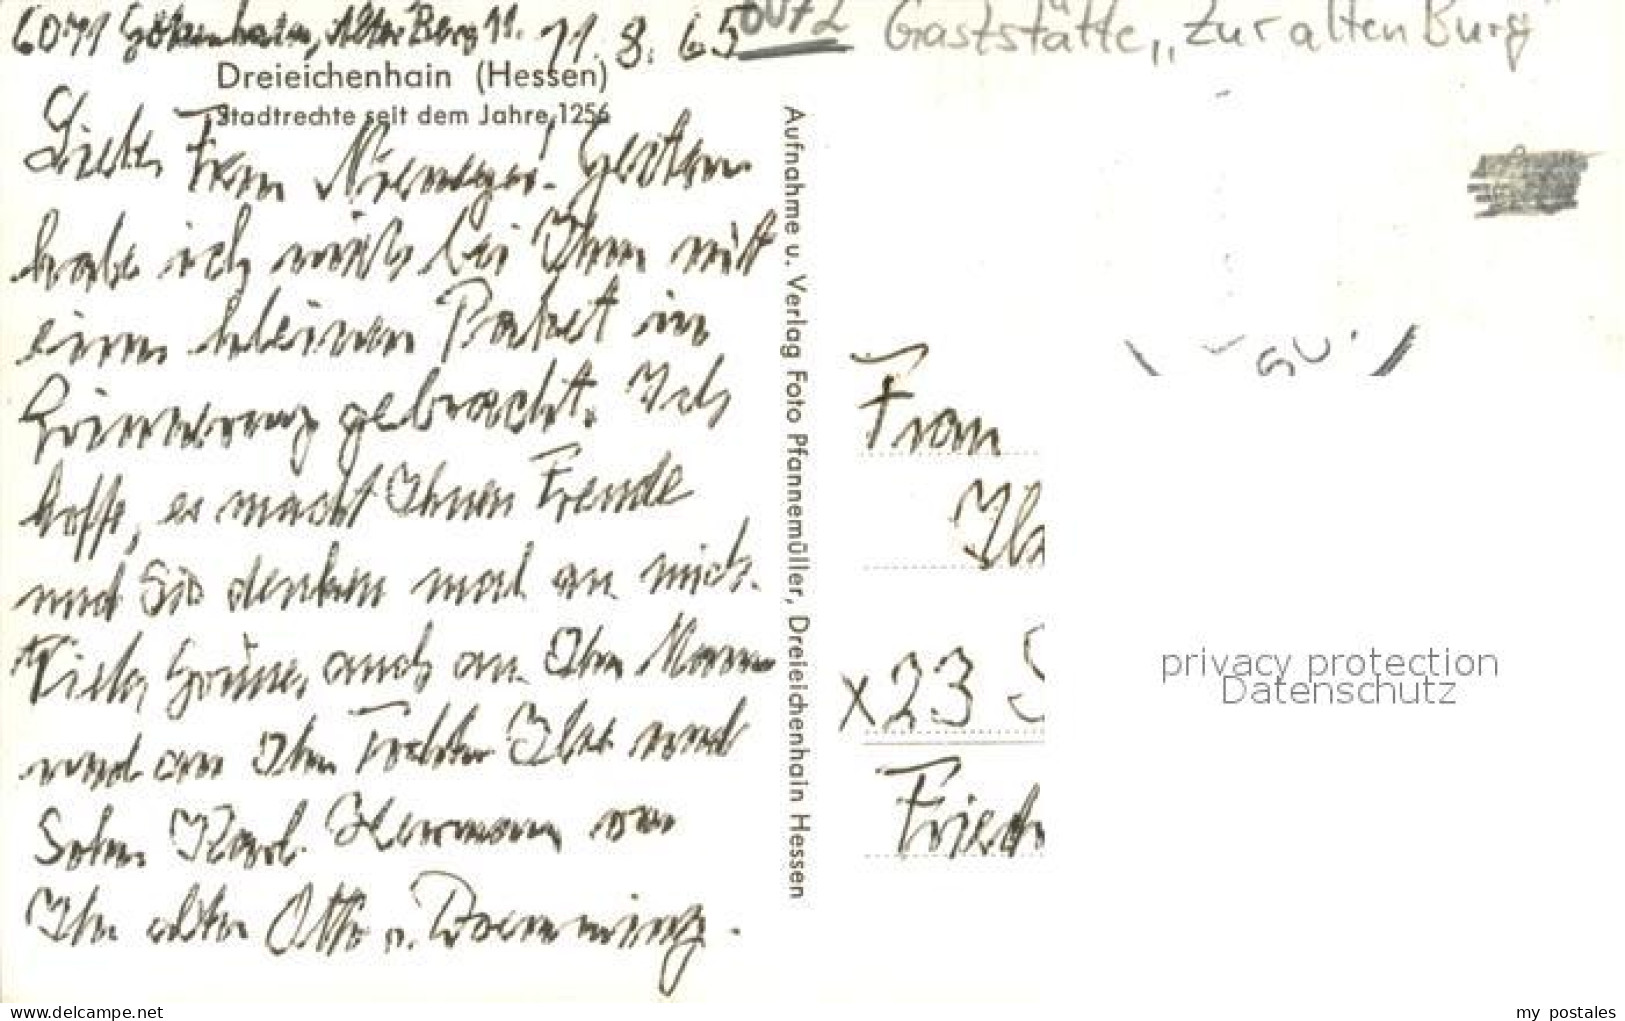 6071 Götzenhain, Alter Berg 11. 11.8.65
Dreieichenhain (Hessen)
Stadtrechte seit dem Jahre 1256
Liebe Frau Gestern
habe ich mich bei Ihnen mit
einem kleinen Paket in
Erinnerung gebracht. Ich
hoffe, es macht Ihnen Freude
und Sie denken mal an mich.
Viele Grüße, auch an Ihren Mann
und an Ihre Tochter Ilse und
Sohn Karl Hermann von
Ihrem alten Otto v.
Aufnahme u. Verlag Foto Pfannemüller, Dreieichenhain Hessen
Gaststätte „Zur alten Burg"
Frau
Ils
x23 S
Friedr
privacy protection
Datenschutz
www.delcampe.net
my_postales